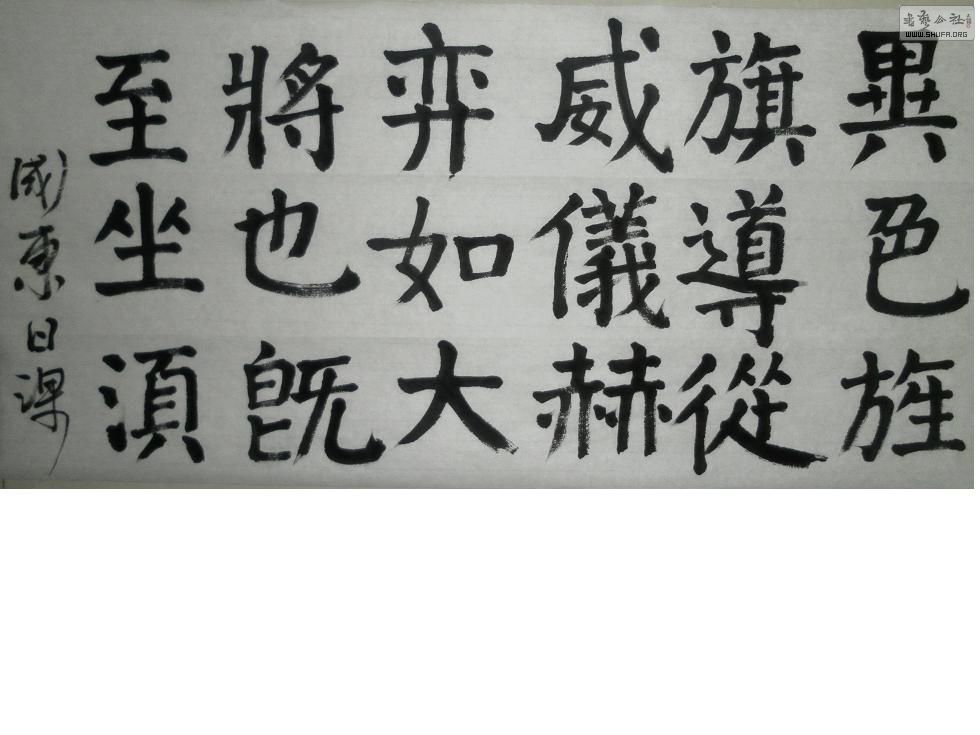 異色旌
旗導從
威儀赫
弈如大
將也既
至坐須
國東日課
書艺公社
WWW.SHUFA.ORG